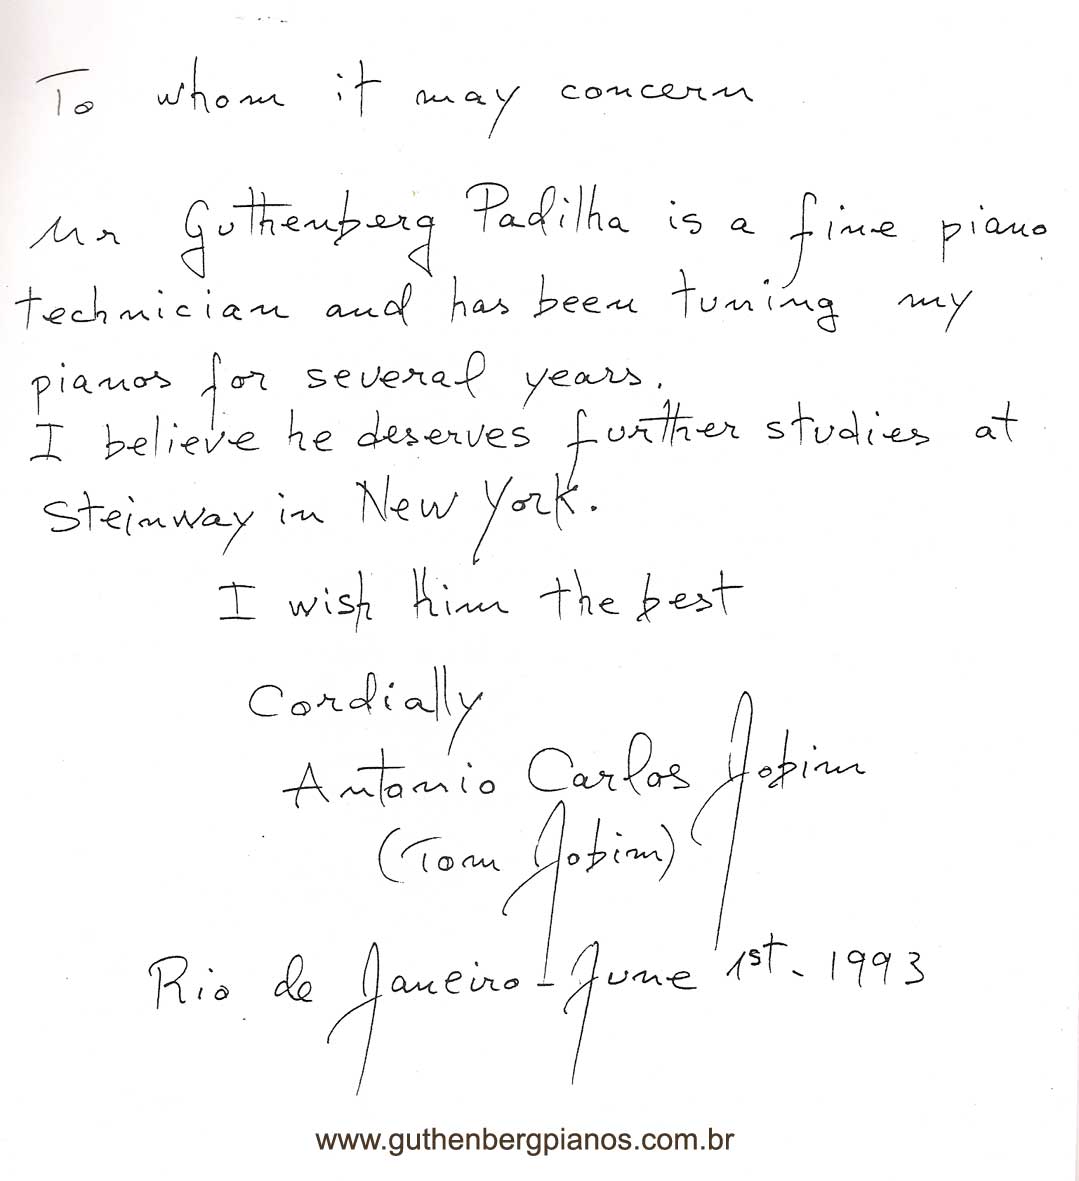 To whom it may concern
Mr Guthenberg Padilha is a fine piano
technician and has been tuning my
pianos for several years.
I believe he deserves further studies at
Steinway in New York.
I wish him the best
Cordially
Antonio Carlos Jobim
(Tom Jobim)
Rio de Janeiro - June 1st. 1993
www.guthenbergpianos.com.br